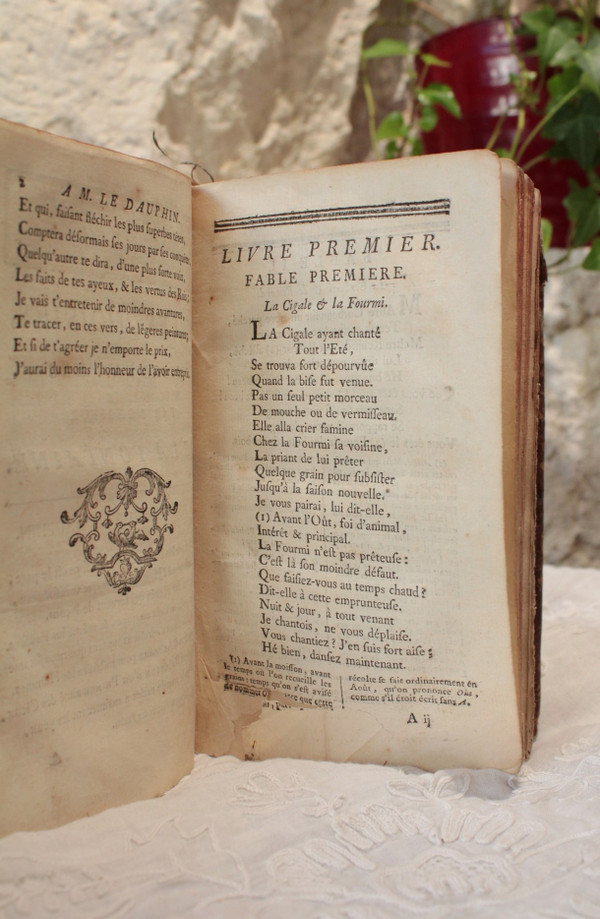 2
A M. LE DAUPHIN.
Et qui, faiſant fléchir les plus ſuperbes têtes,
Comptera déſormais ſes jours par ſes conquêtes,
Quelqu'autre te dira, d'une plus forte voix,
Les faits de tes ayeux, & les vertus des Rois;
Je vais t'entretenir de moindres avantures,
Te tracer, en ces vers, de légeres peintures;
Et ſi de t'agréer je n'emporte le prix,
J'aurai du moins l'honneur de l'avoir entrepris.
LIVRE PREMIER.
FABLE PREMIERE.
La Cigale & la Fourmi.
LA Cigale ayant chanté
Tout l'Eté,
Se trouva fort dépourvûe
Quand la biſe fut venue.
Pas un ſeul petit morceau
De mouche ou de vermiſſeau.
Elle alla crier famine
Chez la Fourmi ſa voiſine,
La priant de lui prêter
Quelque grain pour ſubſiſter
Juſqu'à la ſaiſon nouvelle.
Je vous pairai, lui dit-elle,
(1) Avant l'Oût, foi d'animal,
Intérêt & principal.
La Fourmi n'eſt pas prêteuſe:
C'eſt là ſon moindre défaut.
Que faiſiez-vous au temps chaud?
Dit-elle à cette emprunteuſe.
Nuit & jour, à tout venant
Je chantois, ne vous déplaiſe.
Vous chantiez? J'en ſuis fort aiſe;
Hé bien, danſez maintenant.
(1) Avant la moiſſon, avant
le temps où l'on recueille les
grains; temps qu'on s'eſt aviſé
de nommer que cette
récolte ſe fait ordinairement en
Août, qu'on prononce Oût,
comme s'il étoit écrit ſans A.
A ij